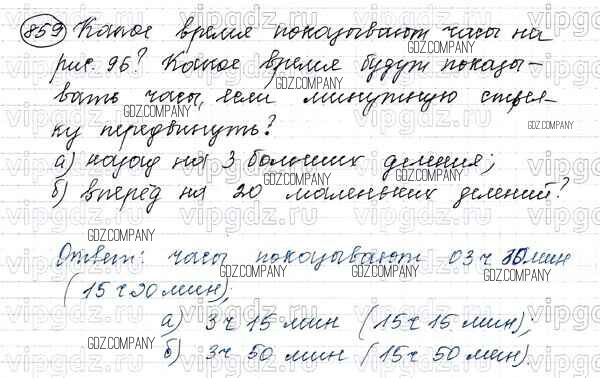 859 Какое время показывают часы на
рис. 96? Какое время будут показы-
вать часы, если минутную стрел-
ку передвинуть?
а) назад на 3 больших деления;
б) вперёд на 20 маленьких делений?
Ответ: часы показывают 03 ч мин
(15 ч 30 мин),
а) 3 ч 15 мин (15 ч 15 мин);
б) 3 ч 50 мин (15 ч 50 мин).
GDZ.COMPANY
vipgdz.ru